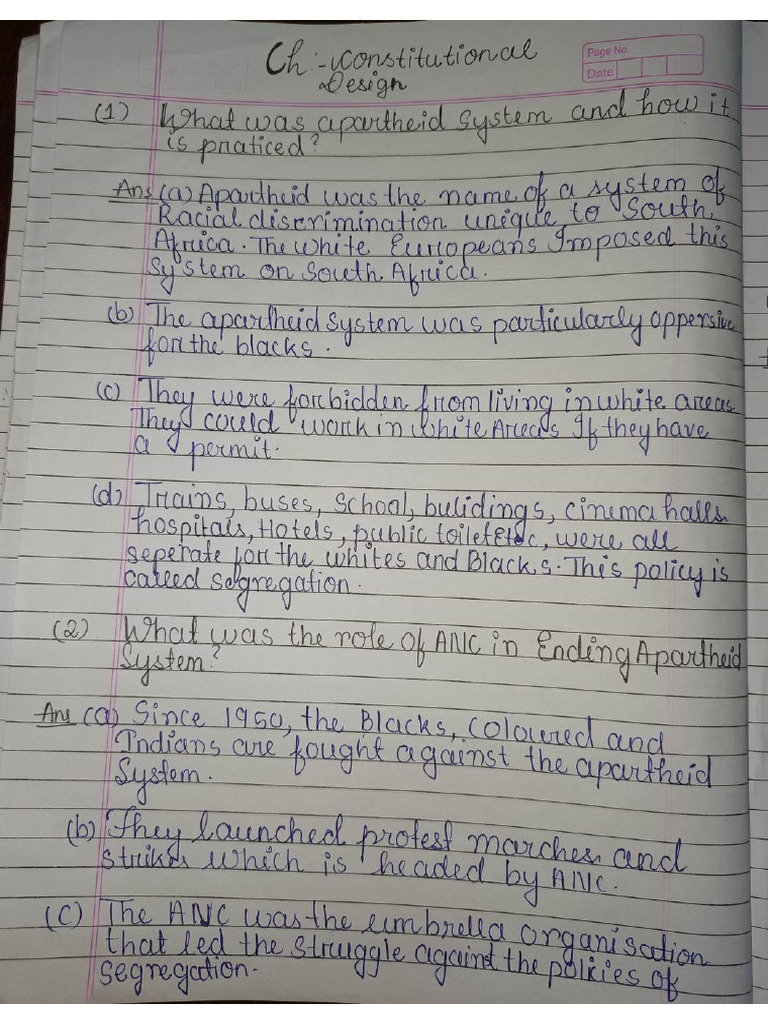 Ch:- Constitutional
Design
Page No.
Date
(1) What was apartheid system and how it
is praticed?
Ans (a) Apartheid was the name of a system of
Racial discrimination unique to South
Africa. The white Europeans Imposed this
System on South Africa.
(b) The apartheid system was particularly oppersive
for the blacks.
(c) They were forbidden from living in white areas
They could work in white Areas If they have
a permit.
(d) Trains, buses, School, bulidings, cinema halls
hospitals, Hotels, public toilet Etc, were all
seperate for the whites and Blacks. This policy is
called segregation.
(2) What was the role of ANC in Ending Apartheid
System?
Ans (a) Since 1950, the Blacks, Coloured and
Indians are fought against the apartheid
System.
(b) They launched protest marches and
strikes which is headed by ANC.
(C) The ANC was the umbrella organisation
that led the struggle against the policies of
segregation.